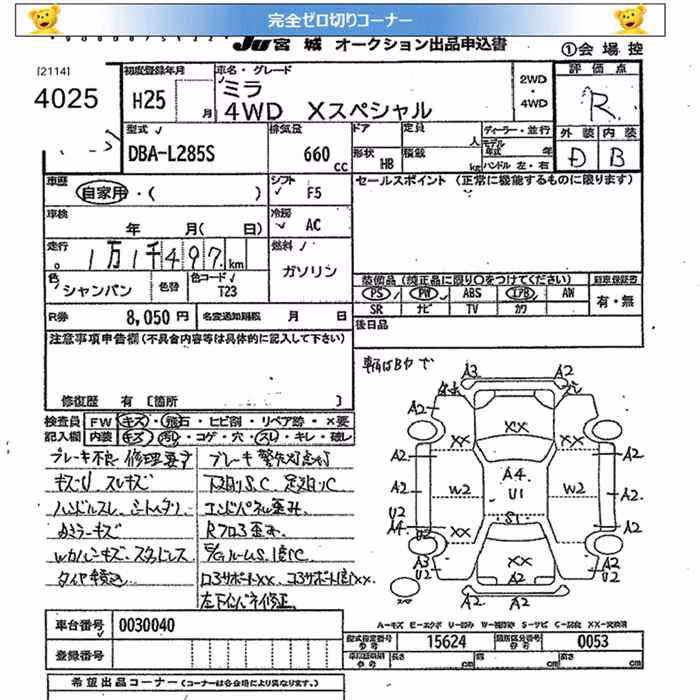 完全ゼロ切りコーナー
JU宮城 オークション出品申込書
①会場控
[2114]
4025
初度登録年月
H25 月
車名・グレード
ミラ
4WD Xスペシャル
2WD
・
4WD
評価点
R
外装 内装
D B
型式
DBA-L285S
排気量
660 CC
ドア
形状 HB
定員 人
積載 kg
ディーラー・並行
モデル年式 年
ハンドル 左・右
車歴
自家用・( )
シフト
F5
セールスポイント (正常に機能するものに限ります)
車検
年 月( 日)
冷房
AC
走行
1万1千497 km
燃料
ガソリン
色
シャンパン
色替
色コード
T23
装備品 (純正品に限り○をつけてください)
PS PW ABS エアB AW
SR ナビ TV カワ
新車保証書
有・無
R券 8,050円
名変通知期限 月 日
後日品
注意事項申告欄 (不具合内容等は具体的に記入して下さい)
修復歴 有 [箇所 ]
検査員
記入欄
FW キズ・飛石・ヒビ割・リペア跡・×要
内装 キズ・汚れ・コゲ・穴・スレ・キレ・破レ
ブレーキ不良 修理要す
ブレーキ警告灯点灯
キズU スレキズ
下廻りS,C 足廻りC
ハンドルスレ シートヘタリ
エンドパネル歪み
Rフロア歪み
タイヤ積込
左下インパネ修正
A3 A2
A2 A2
XX XX XX
A2 A2
A4
U1
A2 W2 W2 A2
U2 A2
A4 U2
S1
XX XX XX
A3 A2 A3
U2 U2
A2
A-キズ E-エクボ U-凹み W-補修跡 S-サビ C-腐食 XX-交換済
車台番号 0030040
型式指定番号 15624
類別区分番号 0053
登録番号
長さ cm 幅 cm 高さ cm
希望出品コーナー (コーナーは各会場により異なります。)